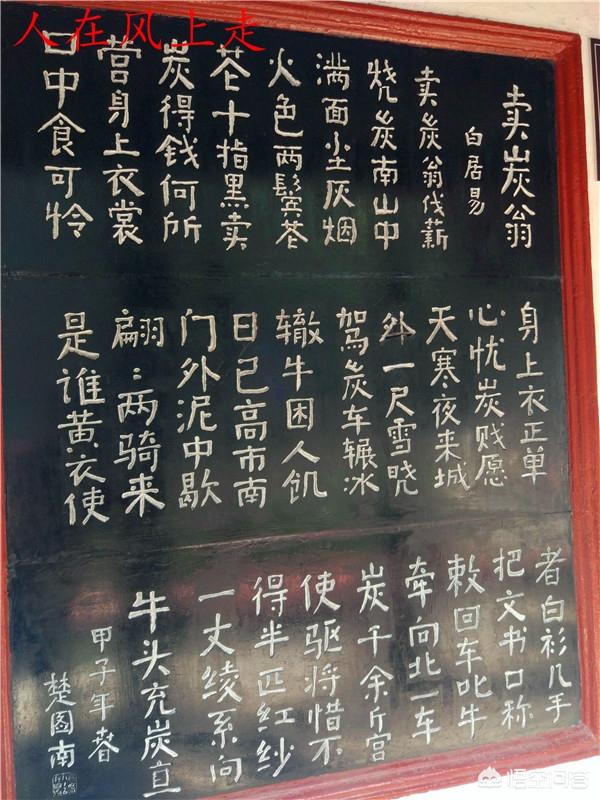 人在风上走
卖炭翁
白居易
卖炭翁伐薪
烧炭南山中
满面尘灰烟
火色两鬓苍
苍十指黑卖
炭得钱何所
营身上衣裳
口中食可怜
身上衣正单
心忧炭贱愿
天寒夜来城
外一尺雪晓
驾炭车辗冰
辙牛困人饥
日已高市南
门外泥中歇
翩:两骑来
是谁黄衣使
者白衫儿手
把文书口称
敕回车叱牛
牵向北一车
炭千余斤宫
使驱将惜不
得半匹红纱
一丈绫系向
牛头充炭直
甲子年春
楚图南
悟空问答